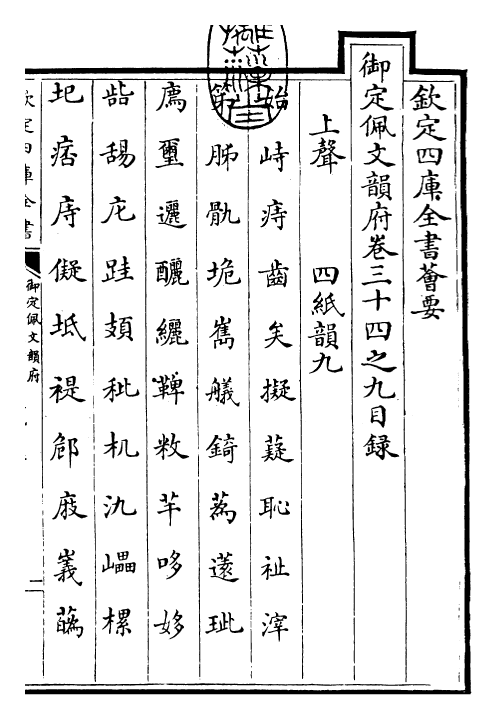 欽定四庫全書薈要
御定佩文韻府卷三十四之九目録
上聲　四紙韻九
始峙痔齒矣擬薿恥祉滓
第胏骩垝嶲艤錡蒍薳玼
廌壐邐釃纚鞞敉芊哆姼
啙舓庀跬頍秕机氿㠥樏
圯痞庤儗坻禔郈庪嶬蘤
欽定四庫全書
御定佩文韻府
二